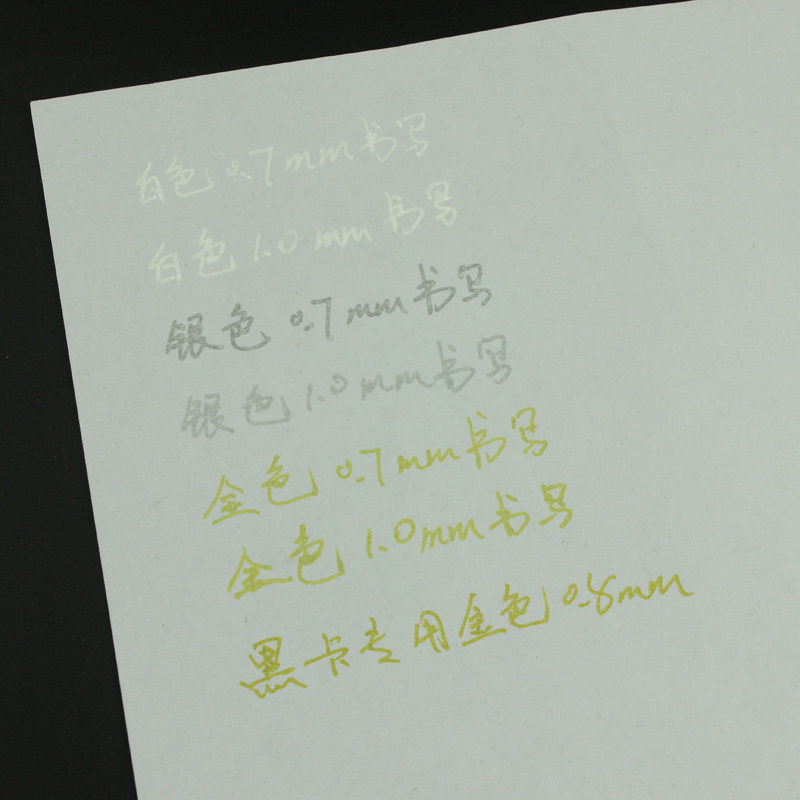 白色 0.7mm书写
白色 1.0mm书写
银色 0.7mm书写
银色 1.0mm书写
金色 0.7mm书写
金色 1.0mm书写
黑卡专用金色 0.8mm